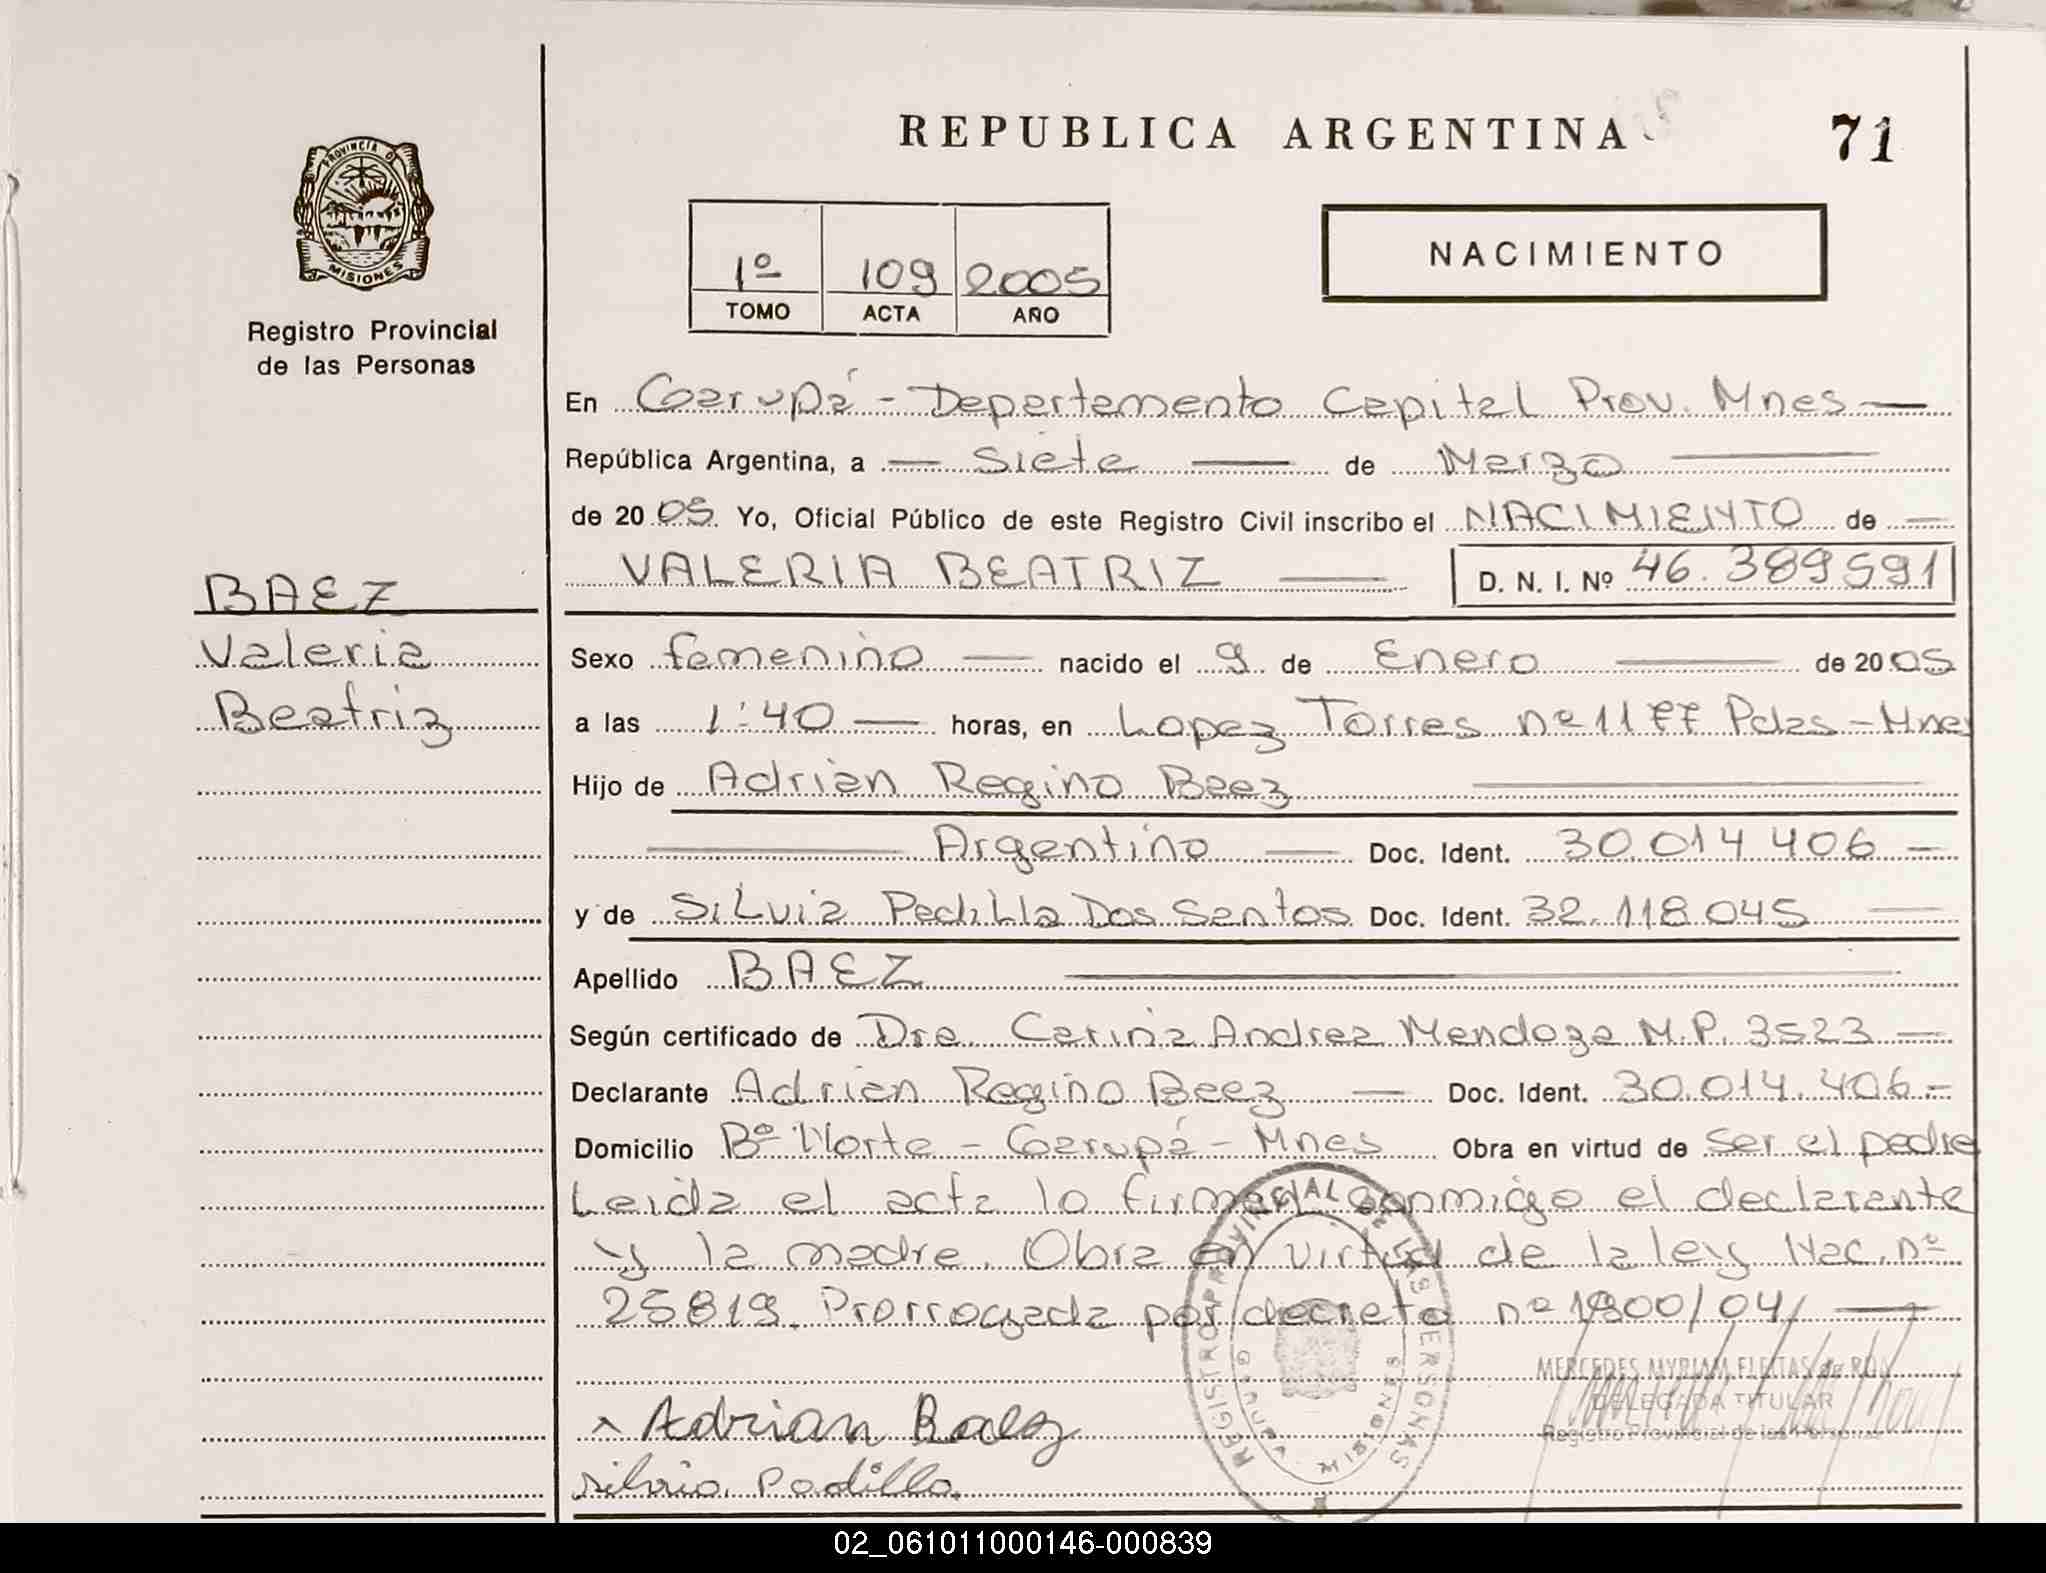 REPUBLICA ARGENTINA
71
PROVINCIA D
MISIONES
Registro Provincial
de las Personas
1º 109 2005
TOMO ACTA AÑO
NACIMIENTO
En Garupá - Departamento Capital Prov. Mnes —
República Argentina, a — Siete — de Marzo —
de 2005 Yo, Oficial Público de este Registro Civil inscribo el NACIMIENTO de —
VALERIA BEATRIZ — D. N. I. Nº 46.389591
BAEZ
Valeria
Beatriz
Sexo femenino — nacido el 9 de Enero — de 2005
a las 1:40 — horas, en Lopez Torres nº 1177 Pdas - Mnes
Hijo de Adrian Regino Baez —
— Argentino — Doc. Ident. 30.014 406 —
y de Silvia Padilla Dos Santos Doc. Ident. 32.118.045 —
Apellido BAEZ —
Según certificado de Dra. Carina Andrea Mendoza M.P. 3523 —
Declarante Adrian Regino Baez — Doc. Ident. 30.014.406 =
Domicilio Bº Norte - Garupá - Mnes Obra en virtud de ser el padre
Leida el acta lo firman conmigo el declarante
y la madre. Obra en virtud de la ley Nac. nº
25819. Prorrogada por decreto nº 1900/04/ —
REGISTRO PROVINCIAL DE LAS PERSONAS
MISIONES
MERCEDES MYRIAM FLEITAS de
DELEGADA TITULAR
Registro Provincial de las Personas
x Adrian Baez
silvia. Padilla.
02_061011000146-000839